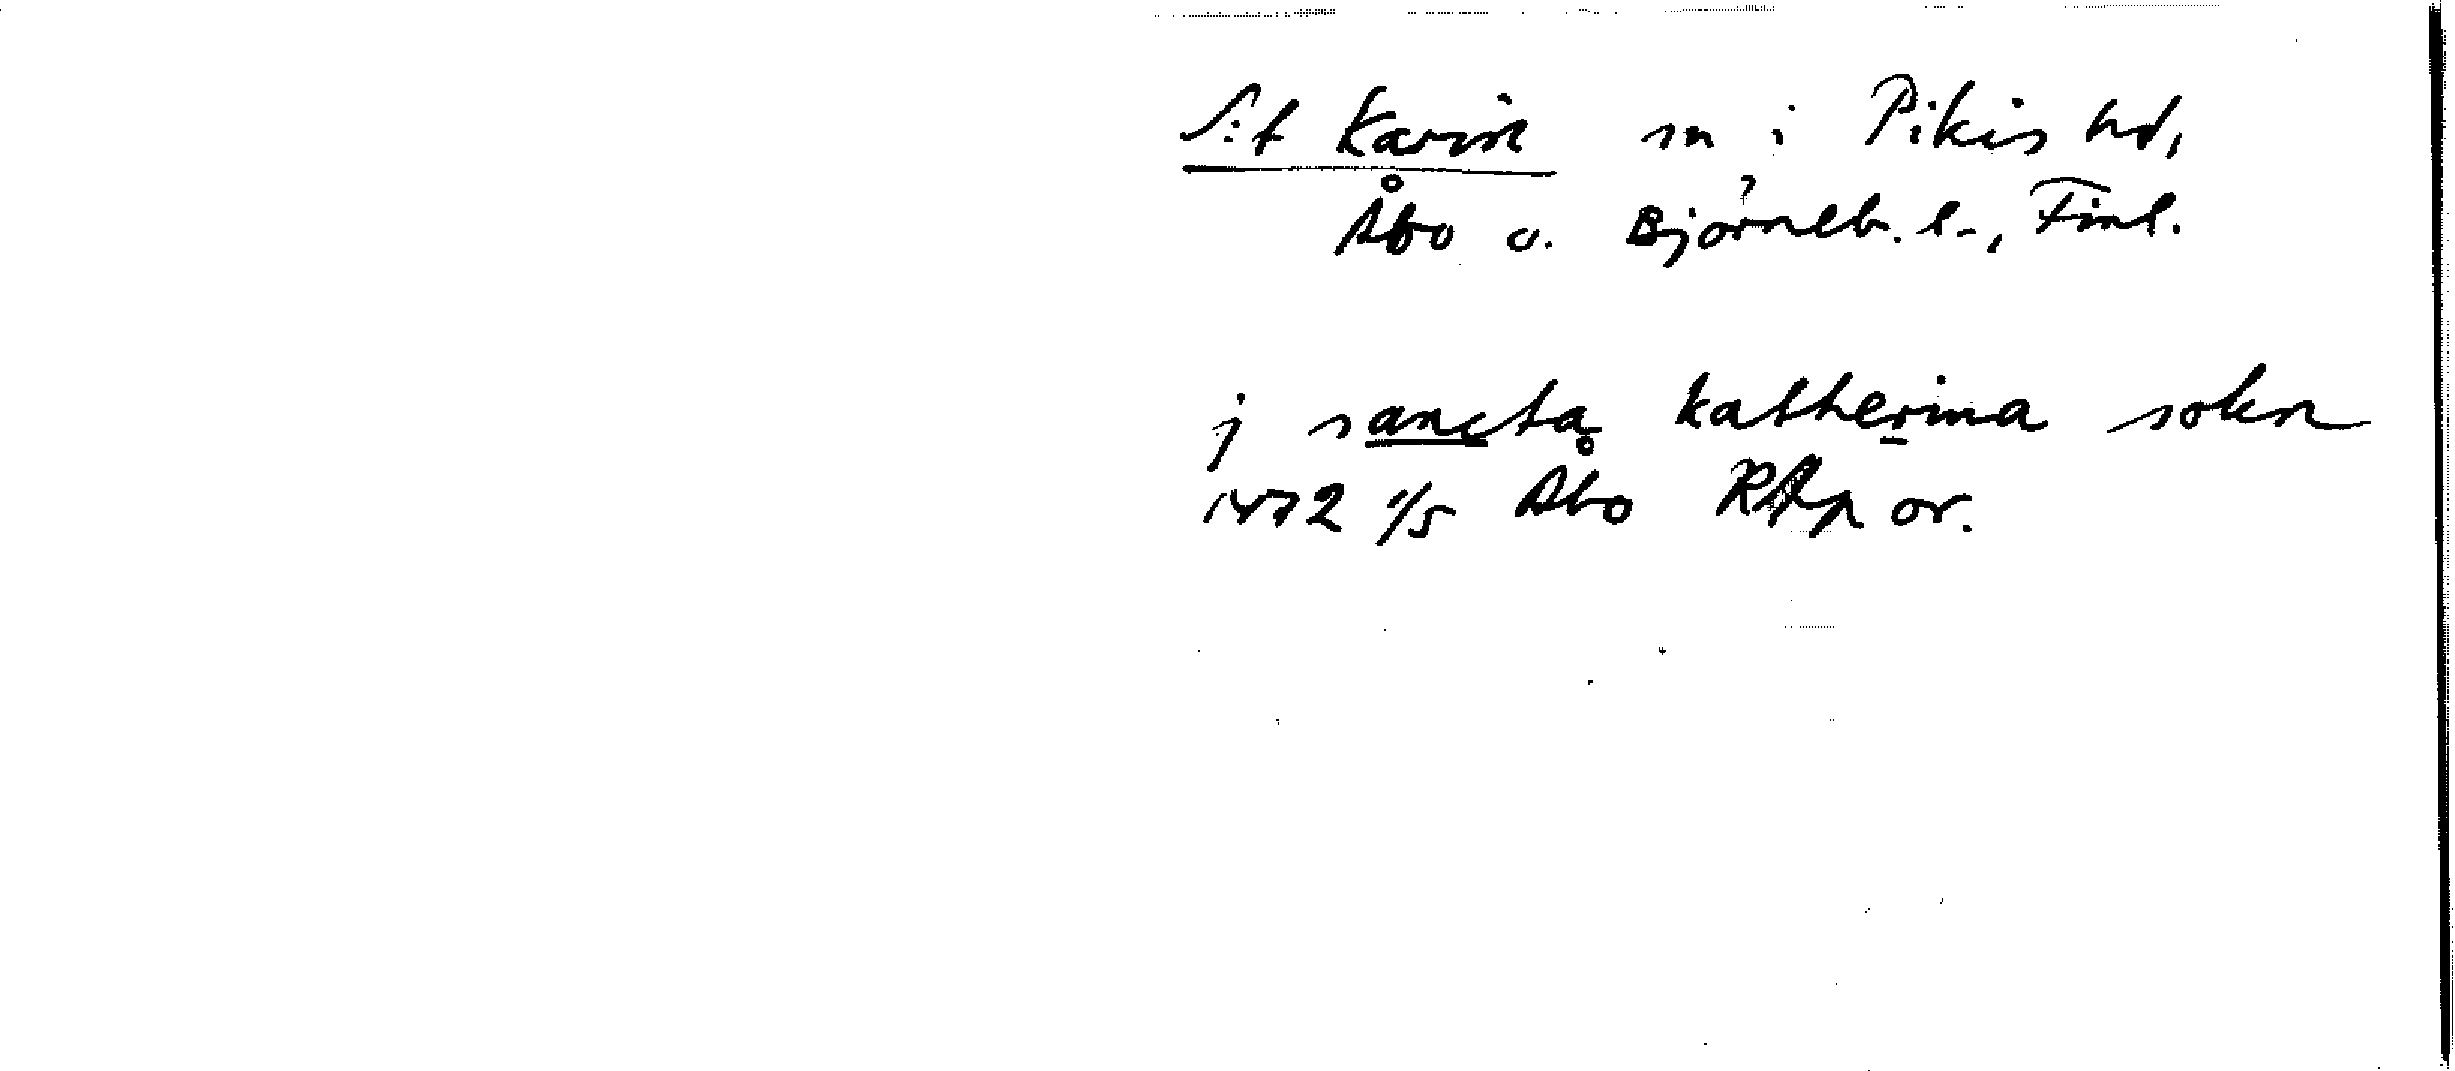 S:t Karin sn i Pikis hd,
Åbo o. Björneb. l., Finl.
j sancta katherina sokn
1472 1/5 Åbo RAp or.